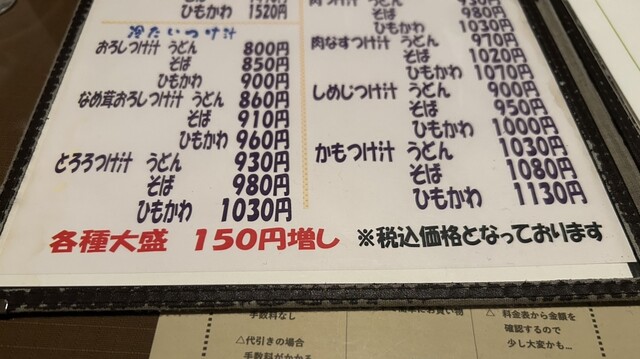 ひもかわ 1520円
冷たいつけ汁
おろしつけ汁 うどん 800円
そば 850円
ひもかわ 900円
なめ茸おろしつけ汁 うどん 860円
そば 910円
ひもかわ 960円
とろろつけ汁 うどん 930円
そば 980円
ひもかわ 1030円
そば 980円
ひもかわ 1030円
肉なすつけ汁 うどん 970円
そば 1020円
ひもかわ 1070円
しめじつけ汁 うどん 900円
そば 950円
ひもかわ 1000円
かもつけ汁 うどん 1030円
そば 1080円
ひもかわ 1130円
各種大盛 150円増し ※税込価格となっております
手数料なし
△代引きの場合
手数料がかかる
△ 料金表から金額を
確認するので
少し大変かも…